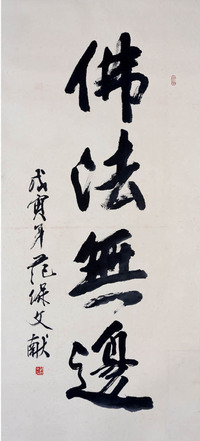 佛法無邊
戊寅年范保文献